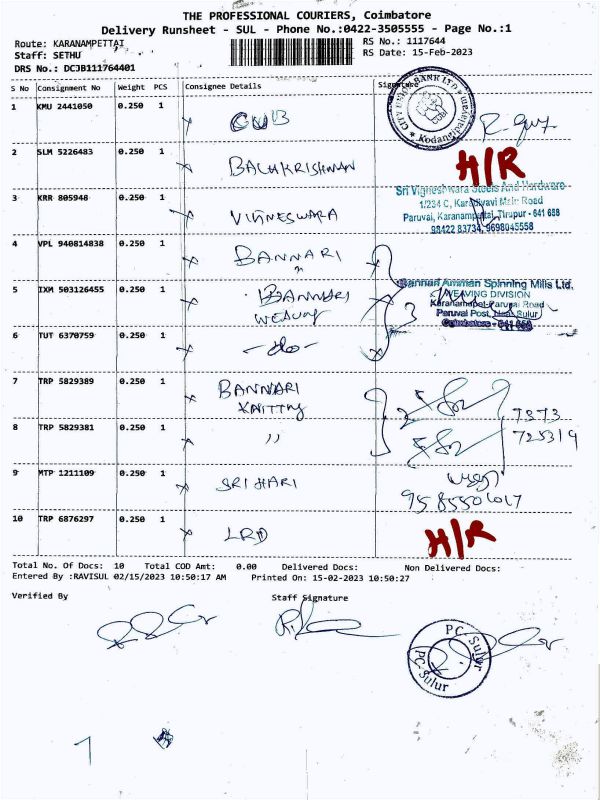 THE PROFESSIONAL COURIERS, Coimbatore
Delivery Runsheet - SUL - Phone No.:0422-3505555 - Page No.:1
Route: KARANAMPETTAI
RS No.: 1117644
Staff: SETHU
RS Date: 15-Feb-2023
DRS No.: DCJB111764401
S No Consignment No Weight PCS Consignee Details Signature
1 KMU 2441050 0.250 1 CUB
CITY UNION BANK LTD
Kodangipalayam
2 SLM 5226483 0.250 1 BALAKRISHNAN H/R
3 KRR 805948 0.250 1 VIGNESWARA
Sri Vigneshwara Steels And Hardware
1/234 C, Karadivavi Main Road
Paruvai, Karanampettai, Tirupur - 641 658
98422 83734, 9698045558
4 VPL 940814838 0.250 1 BANNARI
5 IXM 503126455 0.250 1 BANNARI
WEAVING
3
Bannari Amman Spinning Mills Ltd.
WEAVING DIVISION
Karanampet-Paruvai Road
Paruvai Post, Near Sulur
Coimbatore - 641 658
6 TUT 6370759 0.250 1 - do -
7 TRP 5829389 0.250 1 BANNARI
KNITTING
2
7373
725319
8 TRP 5829381 0.250 1 "
9 MTP 1211109 0.250 1 SRI HARI
9585506017
10 TRP 6876297 0.250 1 LRD H/R
Total No. Of Docs: 10 Total COD Amt: 0.00 Delivered Docs: Non Delivered Docs:
Entered By :RAVISUL 02/15/2023 10:50:17 AM Printed On: 15-02-2023 10:50:27
Verified By Staff Signature
PC-Sulur
PC-Sulur
1